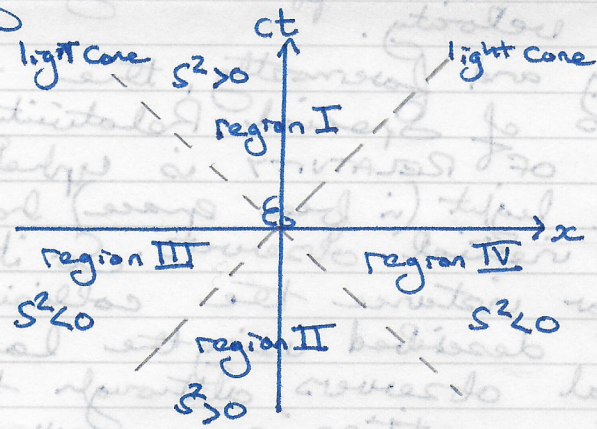 ct
light cone
light cone
S²>0
region I
ε₀
x
region III
region IV
S²<0
S²<0
region II
S²>0